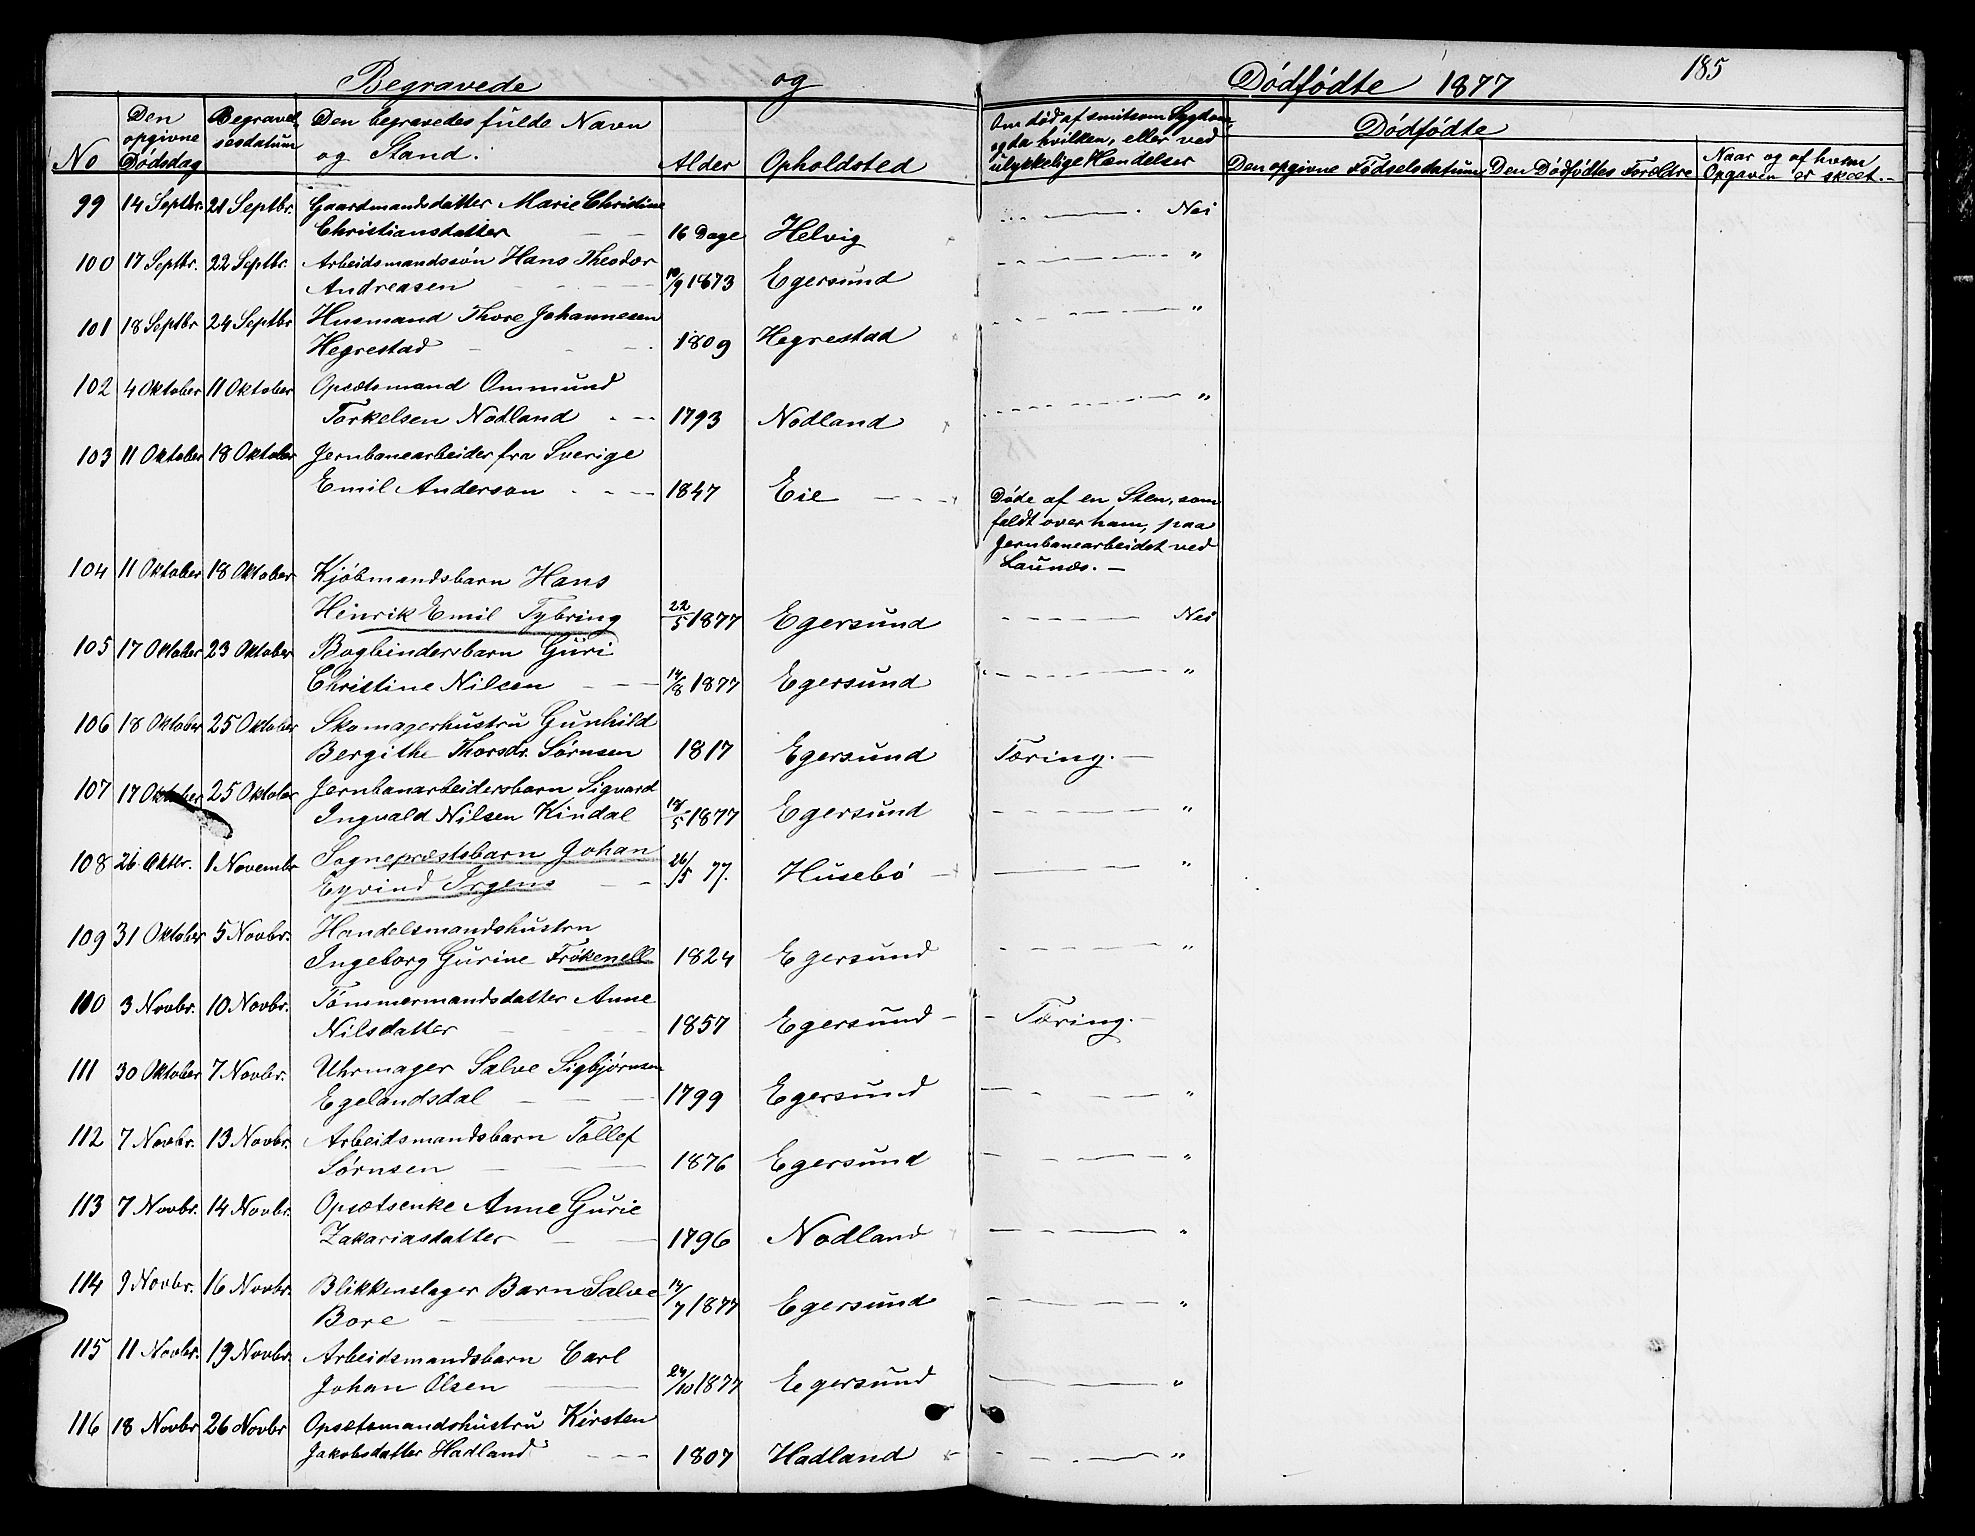 185
Begravede og Dødfødte 1877
No
Den opgivne Dødsdag
Begravelsesdatum
Den begravedes fulde Navn og Stand.
Alder
Opholdsted
Om død af smitsom Sygdom, og da hvilken, eller ved ulykkelige Hændelser
Dødfødte
Den opgivne Fødselsdatum
Den Dødfødtes Forældre
Naar og af hvem Opgaven er skeet.
99 14 Septbr. 21 Septbr. Gaardmandsdatter Marie Christine
Christiansdatter 16 Dage Helvig Nei
100 17 Septbr. 22 Septbr. Arbeidsmandssøn Hans Theodor
Andreasen 10/9 1873 Egersund "
101 18 Septbr 24 Septbr Husmand Thore Johannesen
Hegrestad 1809 Hegrestad "
102 4 Oktober 11 Oktober Opsætsmand Ommund
Torkelsen Nodland 1793 Nodland "
103 11 Oktober 18 Oktober Jernbanearbeider fra Sverige
Emil Anderson 1847 Eie Døde af en Sten, som
faldt over ham, paa
Jernbanearbeidet ved
Launæs.
104 11 Oktober 18 Oktober Kjøbmandsbarn Hans
Hinrik Emil Tybring 22/5 1877 Egersund Nei
105 17 Oktober 23 Oktober Bogbindersbarn Guri
Christine Nilsen 14/8 1877 Egersund "
106 18 Oktober 25 Oktober Skomagerhustru Gunhild
Bergithe Thorsdr. Sørnsen 1817 Egersund Tæring.
107 17 Oktober 25 Oktober Jernbanarbeidersbarn Sigvard
Ingvald Nilsen Kindal 18/5 1877 Egersund "
108 26 Oktbr. 1 Novembr Sognepræstsbarn Johan
Eyvind Irgens 26/5 77. Husebø "
109 31 Oktober 5 Novbr. Handelsmandshustru
Ingeborg Gurine Frøkenell 1824 Egersund "
110 3 Novbr. 10 Novbr. Tømmermandsdatter Anne
Nilsdatter 1857 Egersund Tæring.
111 30 Oktober 7 Novbr. Uhrmager Salve Sigbjørnsen
Egelandsdal 1799 Egersund "
112 7 Novbr. 13 Novbr. Arbeidsmandsbarn Tollef
Sørnsen 1876 Egersund "
113 7 Novbr. 14 Novbr. Opsætsenke Anne Gurie
Zakariasdatter 1796 Nodland "
114 9 Novbr. 16 Novbr. Blikkenslager Barn Salve
Bore 14/7 1877 Egersund "
115 11 Novbr. 19 Novbr. Arbeidsmandsbarn Carl
Johan Olsen 24/10 1877 Egersund "
116 18 Novbr 26 Novbr Opsætsmandshustru Kirsten
Jakobsdatter Hadland 1807 Hadland "